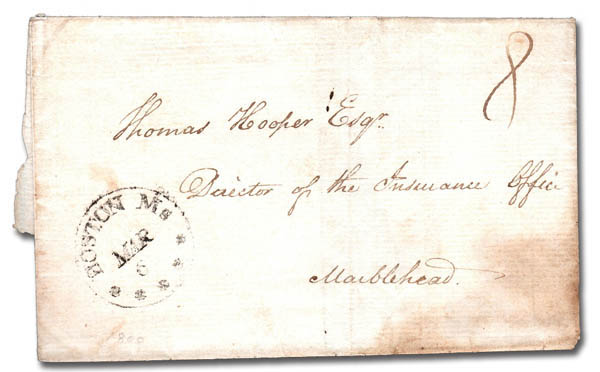 8
Thomas Hooper Esqr.
Director of the Insurance Office
Marblehead.
BOSTON Ms
MAR
6
1800